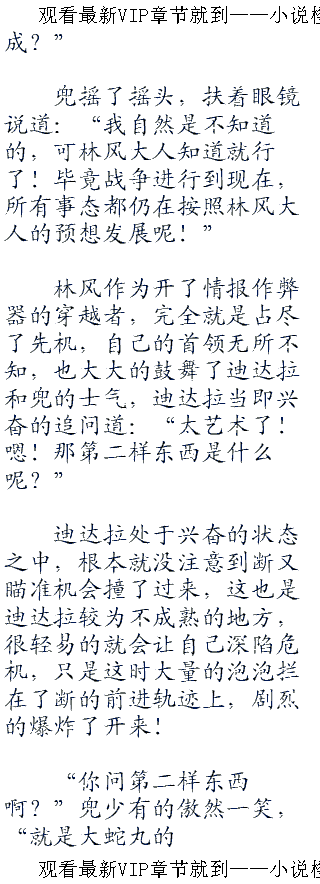 观看最新VIP章节就到——小说
成？”
兜摇了摇头，扶着眼镜
说道：“我自然是不知道
的，可林风大人知道就行
了！毕竟战争进行到现在，
所有事态都仍在按照林风大
人的预想发展呢！”
林风作为开了情报作弊
器的穿越者，完全就是占尽
了先机，自己的首领无所不
知，也大大的鼓舞了迪达拉
和兜的士气，迪达拉当即兴
奋的追问道：“太艺术了！
嗯！那第二样东西是什么
呢？”
迪达拉处于兴奋的状态
之中，根本就没注意到断又
瞄准机会撞了过来，这也是
迪达拉较为不成熟的地方，
很轻易的就会让自己深陷危
机，只是这时大量的泡泡拦
在了断的前进轨迹上，剧烈
的爆炸了开来！
“你问第二样东西
啊？”兜少有的傲然一笑，
“就是大蛇丸的
观看最新VIP章节就到——小说